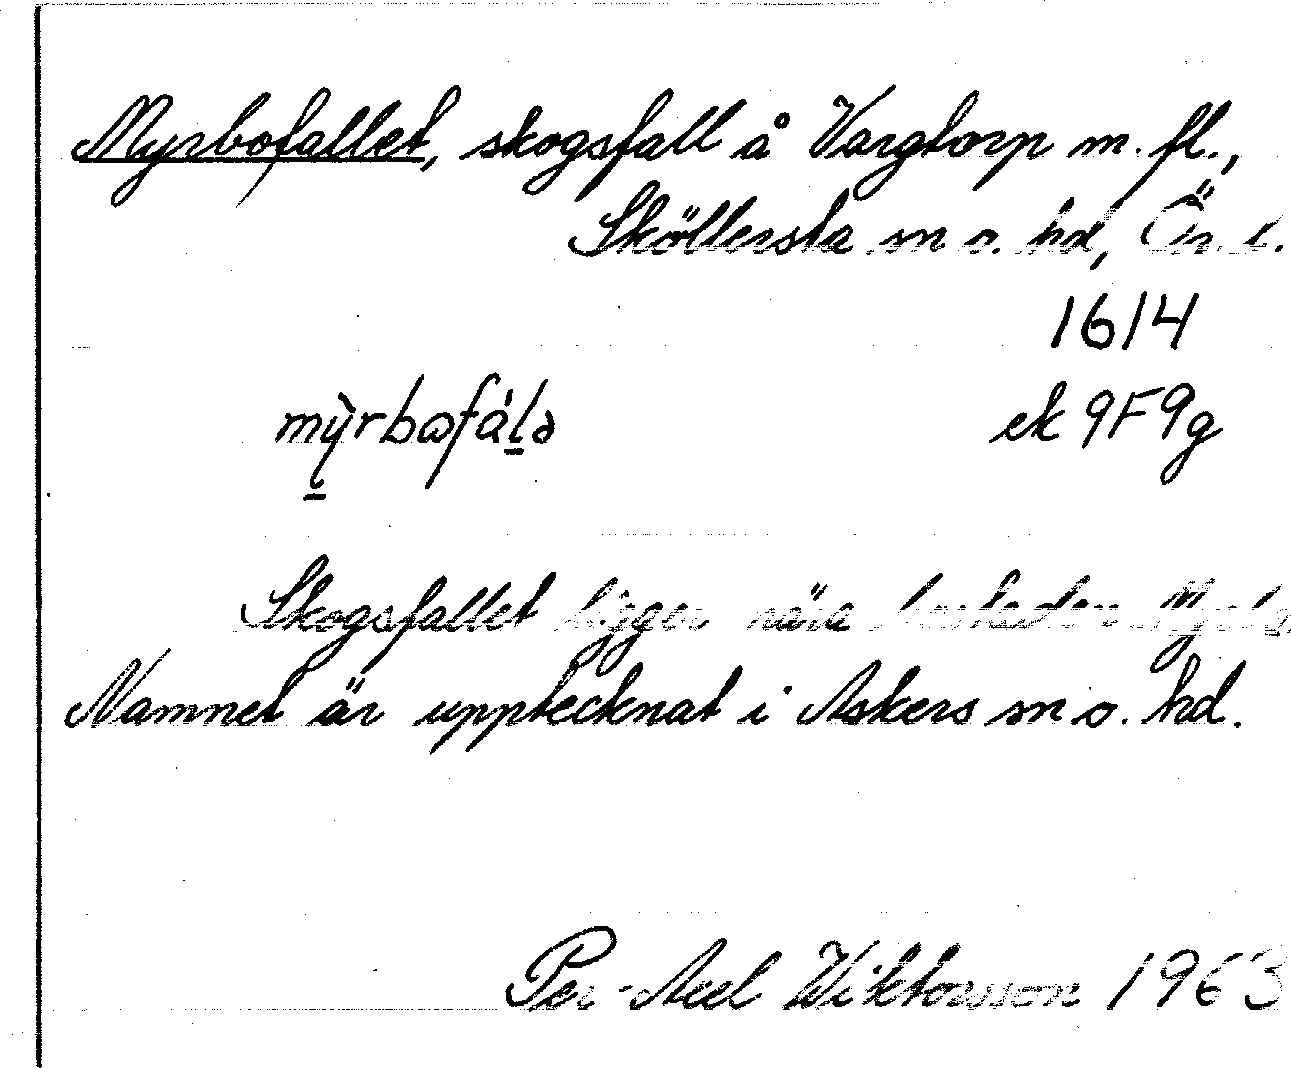 Myrbofallet, skogsfall å Vargtorp m. fl.,
Sköllersta sn o. hd, Ör. l.
1614
mỳrbɷfál̠ə ek 9F9g
Skogsfallet ligger nära
Namnet är upptecknat i Askers sn o. hd.
Per-Axel Wiktorsson 1963